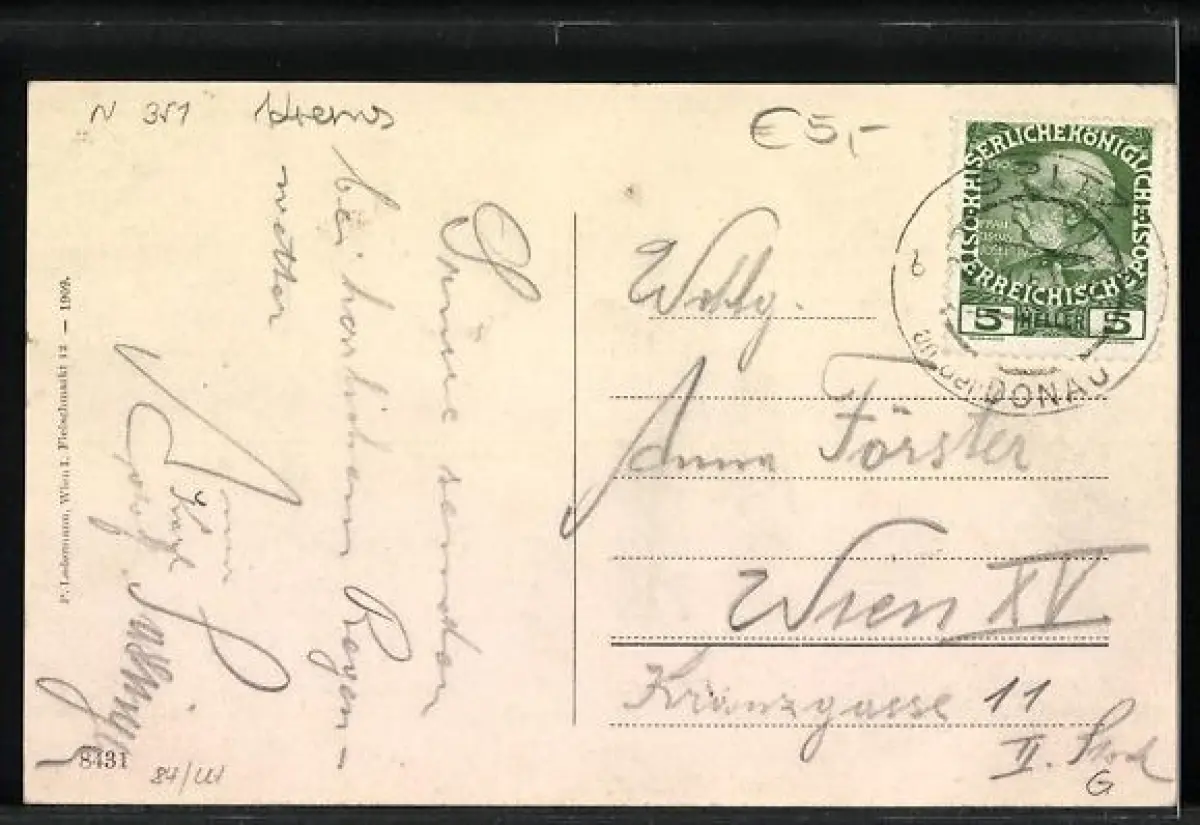 N 351
Krems
€5,-
ÖSTERREICHISCHE POST
KAISERLICHE KÖNIGLICHE
5 HELLER 5
an der DONAU
Grüße senden
bei herrlichem Regen-
wetter
8431
84/III
P. Ledermann, Wien I. Fleischmarkt 12 — 1909.
Anna Förster
Wien XV.
Kranzgasse 11
II. Stock
G